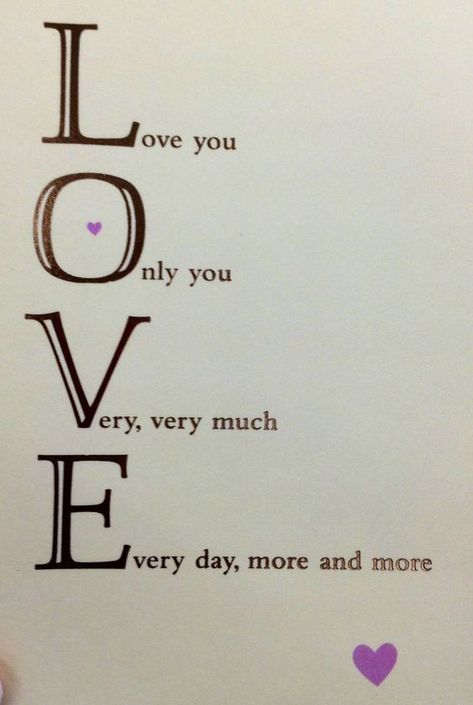 Love you
Only you
Very, very much
Every day, more and more